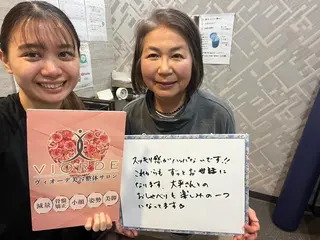 VIORDE
ヴィオーデ美容整体サロン
減量
骨盤矯正
小顔
姿勢
美脚
スッキリ感がハンパないです!!
これからも ずっとお世話に
なります。大平さんとの
おしゃべりも 楽しみの一つ
になってます